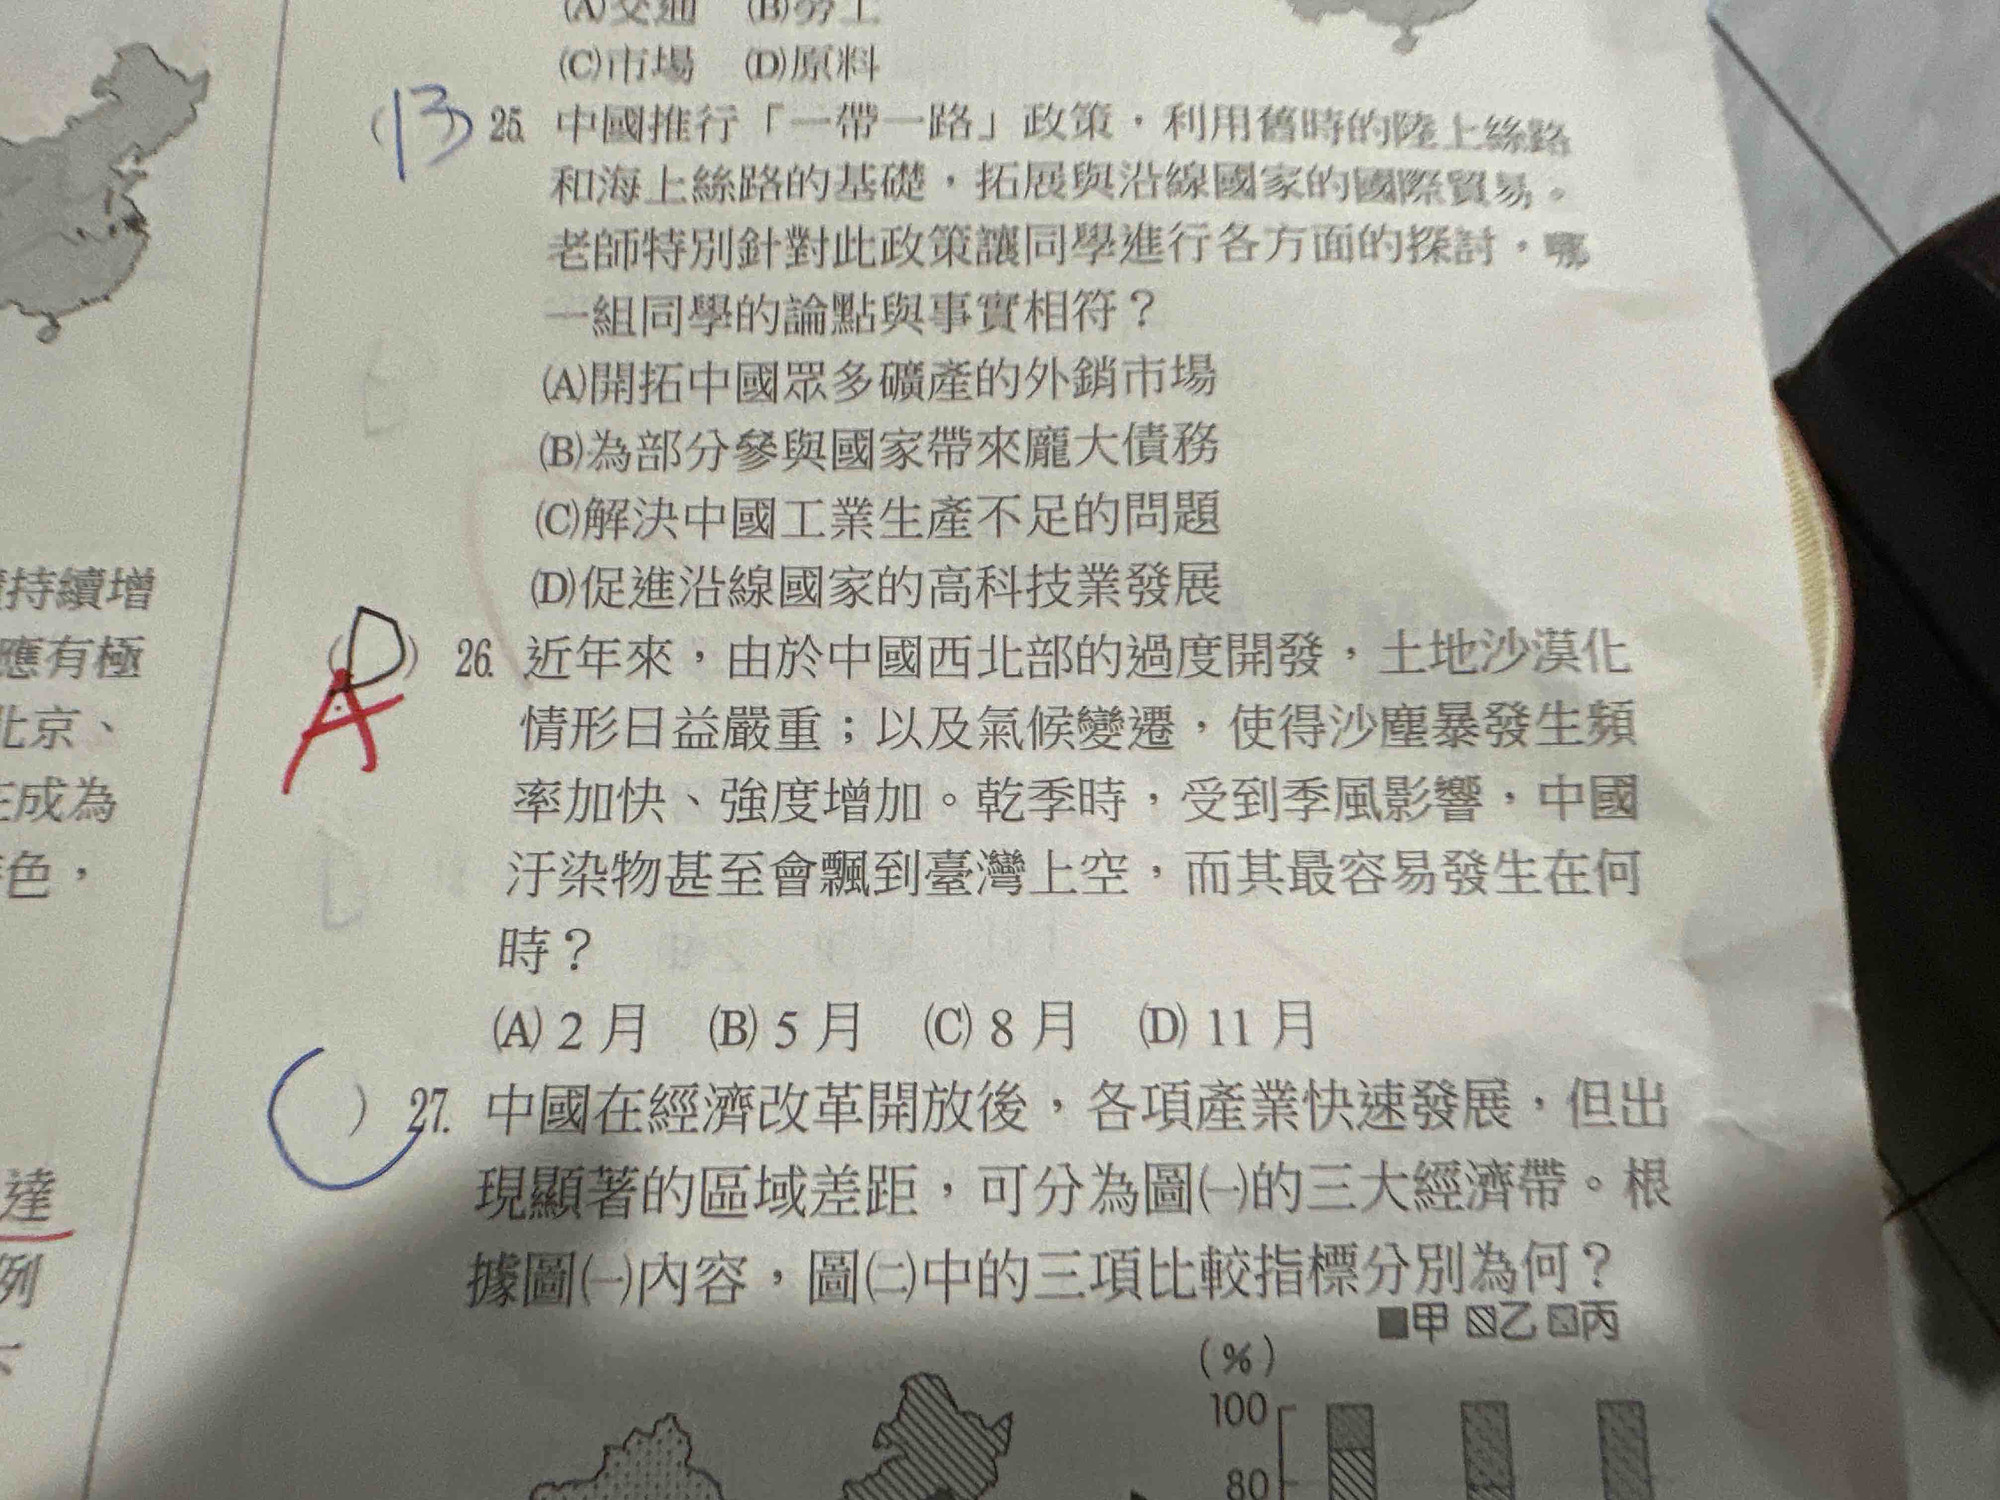 (A)交通 (B)勞工
(C)市場 (D)原料
(B) 25. 中國推行「一帶一路」政策,利用舊時的陸上絲路
和海上絲路的基礎,拓展與沿線國家的國際貿易。
老師特別針對此政策讓同學進行各方面的探討,哪
一組同學的論點與事實相符?
(A)開拓中國眾多礦產的外銷市場
(B)為部分參與國家帶來龐大債務
(C)解決中國工業生產不足的問題
(D)促進沿線國家的高科技業發展
(D) 26. 近年來,由於中國西北部的過度開發,土地沙漠化
A
情形日益嚴重;以及氣候變遷,使得沙塵暴發生頻
率加快、強度增加。乾季時,受到季風影響,中國
汙染物甚至會飄到臺灣上空,而其最容易發生在何
時?
(A) 2 月 (B) 5 月 (C) 8 月 (D) 11 月
(C) 27. 中國在經濟改革開放後,各項產業快速發展,但出
現顯著的區域差距,可分為圖㈠的三大經濟帶。根
據圖㈠內容,圖㈡中的三項比較指標分別為何?
甲 乙 丙
(%)
100
80
持續增
應有極
北京、
成為
色,
達
例